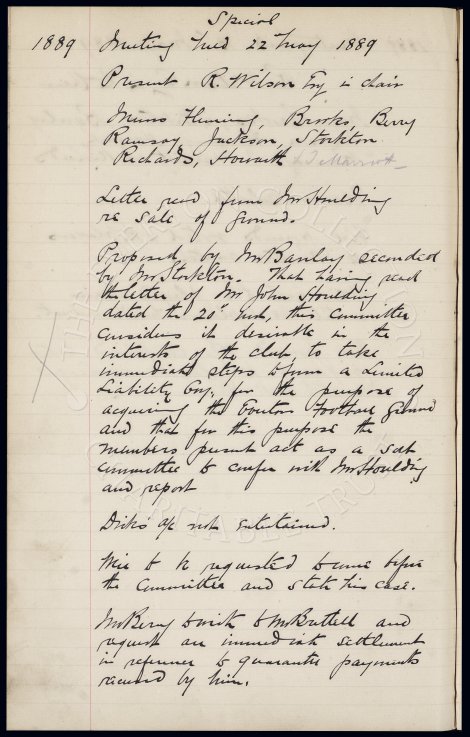 Special
1889 Meeting held 22 May 1889
Present R. Wilson Esq in chair
Messrs Fleming, Brooks, Berry
Ramsay, Jackson, Stockton
Richards, Howarth
Letter read from Mr Houlding
re sale of ground.
Proposed by Mr Barclay seconded
by Mr Stockton. That having read
the letter of Mr John Houlding
dated the 20th inst, this committee
considers it desirable in the
interests of the club, to take
immediate steps to form a Limited
Liability Coy, for the purpose of
acquiring the Everton Football Ground
and that for this purpose the
members present act as a sub
committee to confer with Mr Houlding
and report
Dick's a/c not entertained.
to be requested to come before
the Committee and state his case.
Mr Berry to write to Mr and
request an immediate settlement
in reference to guarantee payments
received by him.